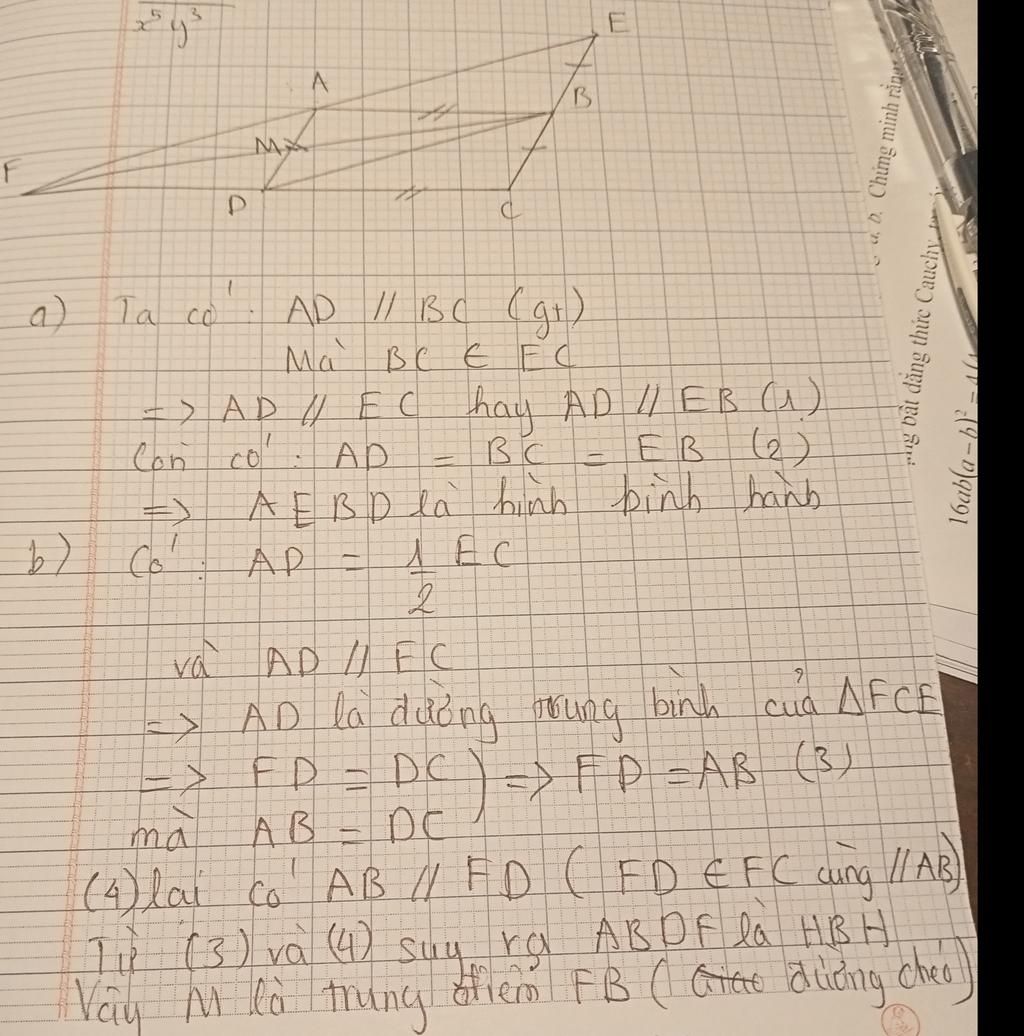 x⁵y³
E
A
B
M
F
D
C
a) Ta có: AD // BC (gt)
Mà BC ∈ EC
=> AD // EC hay AD // EB (1)
Còn có: AD = BC = EB (2)
=> AEBD là hình bình hành
b) Có: AD = 1/2 EC
và AD // EC
=> AD là đường trung bình của ΔFCE
=> FD = DC } => FD = AB (3)
mà AB = DC
(4) lại có AB // FD ( FD ∈ FC cùng // AB)
Từ (3) và (4) suy ra ABDF là HBH
Vậy M là trung điểm FB ( Giao đường chéo)
a, b. Chứng minh rằng
bất đẳng thức Cauchy
16ab(a − b)²